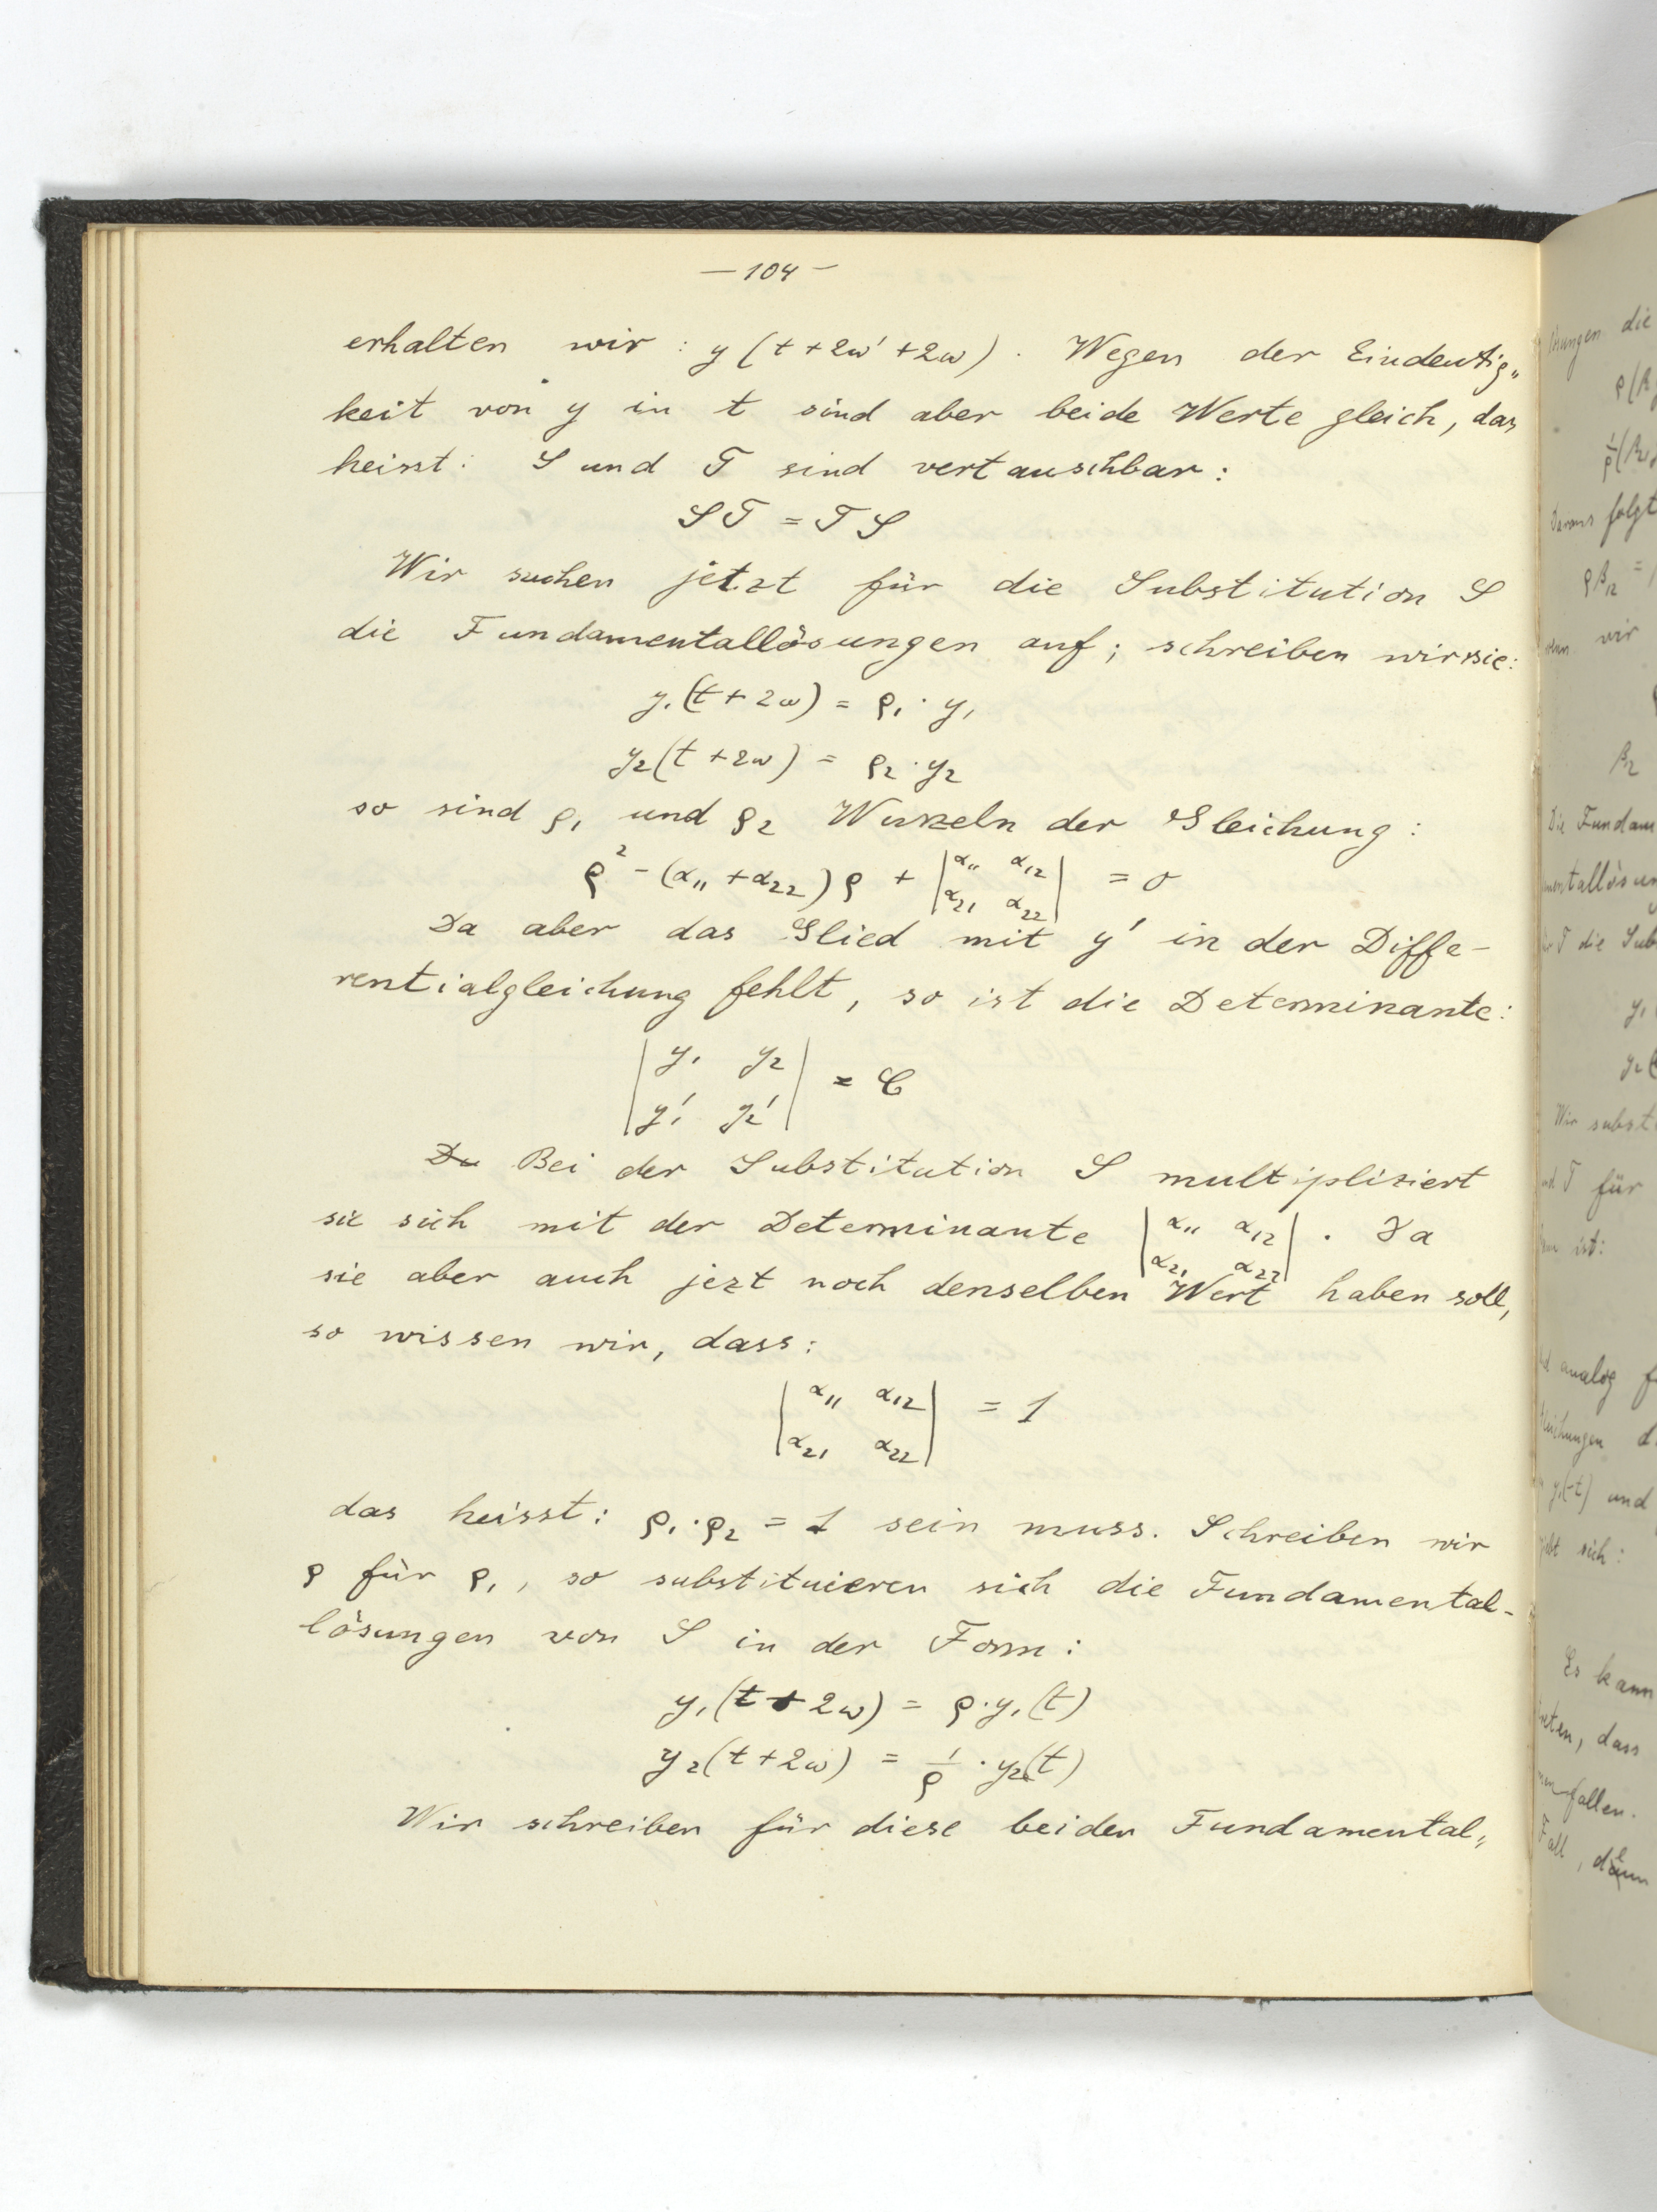 — 104 —
erhalten wir : y (t + 2ω' + 2ω) . Wegen der Eindeutig„
keit von y in t sind aber beide Werte gleich, das
heisst : S und T sind vertauschbar :
S T = T S
Wir suchen jetzt für die Substitution S
die Fundamentallösungen auf ; schreiben wir sie :
y₁(t + 2ω) = ρ₁ · y₁
y₂(t + 2ω) = ρ₂ · y₂
so sind ρ₁ und ρ₂ Wurzeln der Gleichung :
ρ² - (α₁₁ + α₂₂) ρ + | α₁₁ α₁₂ | = 0
| α₂₁ α₂₂ |
Da aber das Glied mit y' in der Diffe-
rentialgleichung fehlt, so ist die Determinante :
| y₁ y₂ | = C
| y₁' y₂' |
Da Bei der Substitution S multipliziert
sie sich mit der Determinante | α₁₁ α₁₂ | . Da
| α₂₁ α₂₂ |
sie aber auch jezt noch denselben Wert haben soll,
so wissen wir, dass :
| α₁₁ α₁₂ | = 1
| α₂₁ α₂₂ |
das heisst : ρ₁ · ρ₂ = 1 sein muss. Schreiben wir
ρ für ρ₁ , so substituieren sich die Fundamental-
lösungen von S in der Form :
y₁(t + 2ω) = ρ · y₁(t)
y₂(t + 2ω) = 1/ρ · y₂(t)
Wir schreiben für diese beiden Fundamental„
die
folgt
wir
β₂
Die Fundam
T die Sub
y₁
Wir subst
T für
ist :
analog
y₁(-t) und
sich :
Es kann
dass
fallen.